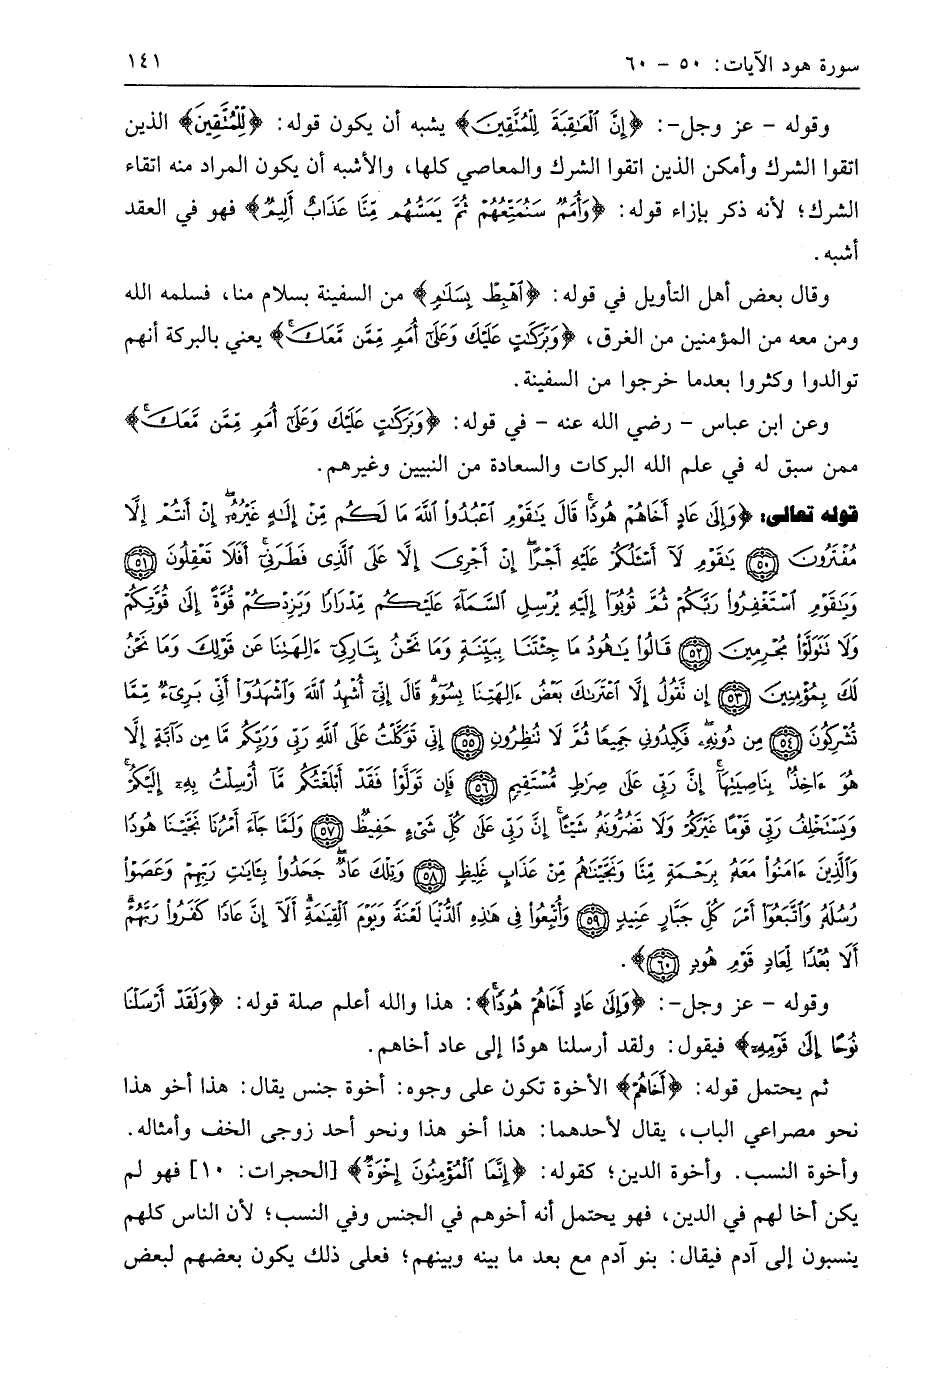 سورة هود الآيات: ٥٠ - ٦٠ ١٤١
وقوله - عز وجل-: ﴿إِنَّ ٱلْعَٰقِبَةَ لِلْمُتَّقِينَ﴾ يشبه أن يكون قوله: ﴿لِلْمُتَّقِينَ﴾ الذين
اتقوا الشرك وأمكن الذين اتقوا الشرك والمعاصي كلها، والأشبه أن يكون المراد منه اتقاء
الشرك؛ لأنه ذكر بإزاء قوله: ﴿وَأُمَمٌ سَنُمَتِّعُهُمْ ثُمَّ يَمَسُّهُم مِّنَّا عَذَابٌ أَلِيمٌ﴾ فهو في العقد
أشبه.
وقال بعض أهل التأويل في قوله: ﴿ٱهْبِطْ بِسَلَٰمٍ﴾ من السفينة بسلام منا، فسلمه الله
ومن معه من المؤمنين من الغرق، ﴿وَبَرَكَٰتٍ عَلَيْكَ وَعَلَىٰٓ أُمَمٍ مِّمَّن مَّعَكَۚ﴾ يعني بالبركة أنهم
توالدوا وكثروا بعدما خرجوا من السفينة.
وعن ابن عباس - رضي الله عنه - في قوله: ﴿وَبَرَكَٰتٍ عَلَيْكَ وَعَلَىٰٓ أُمَمٍ مِّمَّن مَّعَكَۚ﴾
ممن سبق له في علم الله البركات والسعادة من النبيين وغيرهم.
قوله تعالى: ﴿وَإِلَىٰ عَادٍ أَخَاهُمْ هُودًاۚ قَالَ يَٰقَوْمِ ٱعْبُدُوا۟ ٱللَّهَ مَا لَكُم مِّنْ إِلَٰهٍ غَيْرُهُۥٓۖ إِنْ أَنتُمْ إِلَّا
مُفْتَرُونَ ﴿٥٠﴾ يَٰقَوْمِ لَآ أَسْـَٔلُكُمْ عَلَيْهِ أَجْرًاۖ إِنْ أَجْرِىَ إِلَّا عَلَى ٱلَّذِى فَطَرَنِىٓۚ أَفَلَا تَعْقِلُونَ ﴿٥١﴾
وَيَٰقَوْمِ ٱسْتَغْفِرُوا۟ رَبَّكُمْ ثُمَّ تُوبُوٓا۟ إِلَيْهِ يُرْسِلِ ٱلسَّمَآءَ عَلَيْكُم مِّدْرَارًا وَيَزِدْكُمْ قُوَّةً إِلَىٰ قُوَّتِكُمْ
وَلَا تَتَوَلَّوْا۟ مُجْرِمِينَ ﴿٥٢﴾ قَالُوا۟ يَٰهُودُ مَا جِئْتَنَا بِبَيِّنَةٍ وَمَا نَحْنُ بِتَارِكِىٓ ءَالِهَتِنَا عَن قَوْلِكَ وَمَا نَحْنُ
لَكَ بِمُؤْمِنِينَ ﴿٥٣﴾ إِن نَّقُولُ إِلَّا ٱعْتَرَىٰكَ بَعْضُ ءَالِهَتِنَا بِسُوٓءٍۗ قَالَ إِنِّىٓ أُشْهِدُ ٱللَّهَ وَٱشْهَدُوٓا۟ أَنِّى بَرِىٓءٌ مِّمَّا
تُشْرِكُونَ ﴿٥٤﴾ مِن دُونِهِۦۖ فَكِيدُونِى جَمِيعًا ثُمَّ لَا تُنظِرُونِ ﴿٥٥﴾ إِنِّى تَوَكَّلْتُ عَلَى ٱللَّهِ رَبِّى وَرَبِّكُم مَّا مِن دَآبَّةٍ إِلَّا
هُوَ ءَاخِذٌۢ بِنَاصِيَتِهَآۚ إِنَّ رَبِّى عَلَىٰ صِرَٰطٍ مُّسْتَقِيمٍ ﴿٥٦﴾ فَإِن تَوَلَّوْا۟ فَقَدْ أَبْلَغْتُكُم مَّآ أُرْسِلْتُ بِهِۦٓ إِلَيْكُمْۚ
وَيَسْتَخْلِفُ رَبِّى قَوْمًا غَيْرَكُمْ وَلَا تَضُرُّونَهُۥ شَيْـًٔاۚ إِنَّ رَبِّى عَلَىٰ كُلِّ شَىْءٍ حَفِيظٌ ﴿٥٧﴾ وَلَمَّا جَآءَ أَمْرُنَا نَجَّيْنَا هُودًا
وَٱلَّذِينَ ءَامَنُوا۟ مَعَهُۥ بِرَحْمَةٍ مِّنَّا وَنَجَّيْنَٰهُم مِّنْ عَذَابٍ غَلِيظٍ ﴿٥٨﴾ وَتِلْكَ عَادٌۖ جَحَدُوا۟ بِـَٔايَٰتِ رَبِّهِمْ وَعَصَوْا۟
رُسُلَهُۥ وَٱتَّبَعُوٓا۟ أَمْرَ كُلِّ جَبَّارٍ عَنِيدٍ ﴿٥٩﴾ وَأُتْبِعُوا۟ فِى هَٰذِهِ ٱلدُّنْيَا لَعْنَةً وَيَوْمَ ٱلْقِيَٰمَةِۗ أَلَآ إِنَّ عَادًا كَفَرُوا۟ رَبَّهُمْۗ
أَلَا بُعْدًا لِّعَادٍ قَوْمِ هُودٍ ﴿٦٠﴾﴾.
وقوله - عز وجل-: ﴿وَإِلَىٰ عَادٍ أَخَاهُمْ هُودًاۚ﴾: هذا والله أعلم صلة قوله: ﴿وَلَقَدْ أَرْسَلْنَا
نُوحًا إِلَىٰ قَوْمِهِۦٓ﴾ فيقول: ولقد أرسلنا هودًا إلى عاد أخاهم.
ثم يحتمل قوله: ﴿أَخَاهُمْ﴾ الأخوة تكون على وجوه: أخوة جنس يقال: هذا أخو هذا
نحو مصراعي الباب، يقال لأحدهما: هذا أخو هذا ونحو أحد زوجي الخف وأمثاله.
وأخوة النسب. وأخوة الدين؛ كقوله: ﴿إِنَّمَا ٱلْمُؤْمِنُونَ إِخْوَةٌ﴾ [الحجرات: ١٠] فهو لم
يكن أخا لهم في الدين، فهو يحتمل أنه أخوهم في الجنس وفي النسب؛ لأن الناس كلهم
ينسبون إلى آدم فيقال: بنو آدم مع بعد ما بينه وبينهم؛ فعلى ذلك يكون بعضهم لبعض